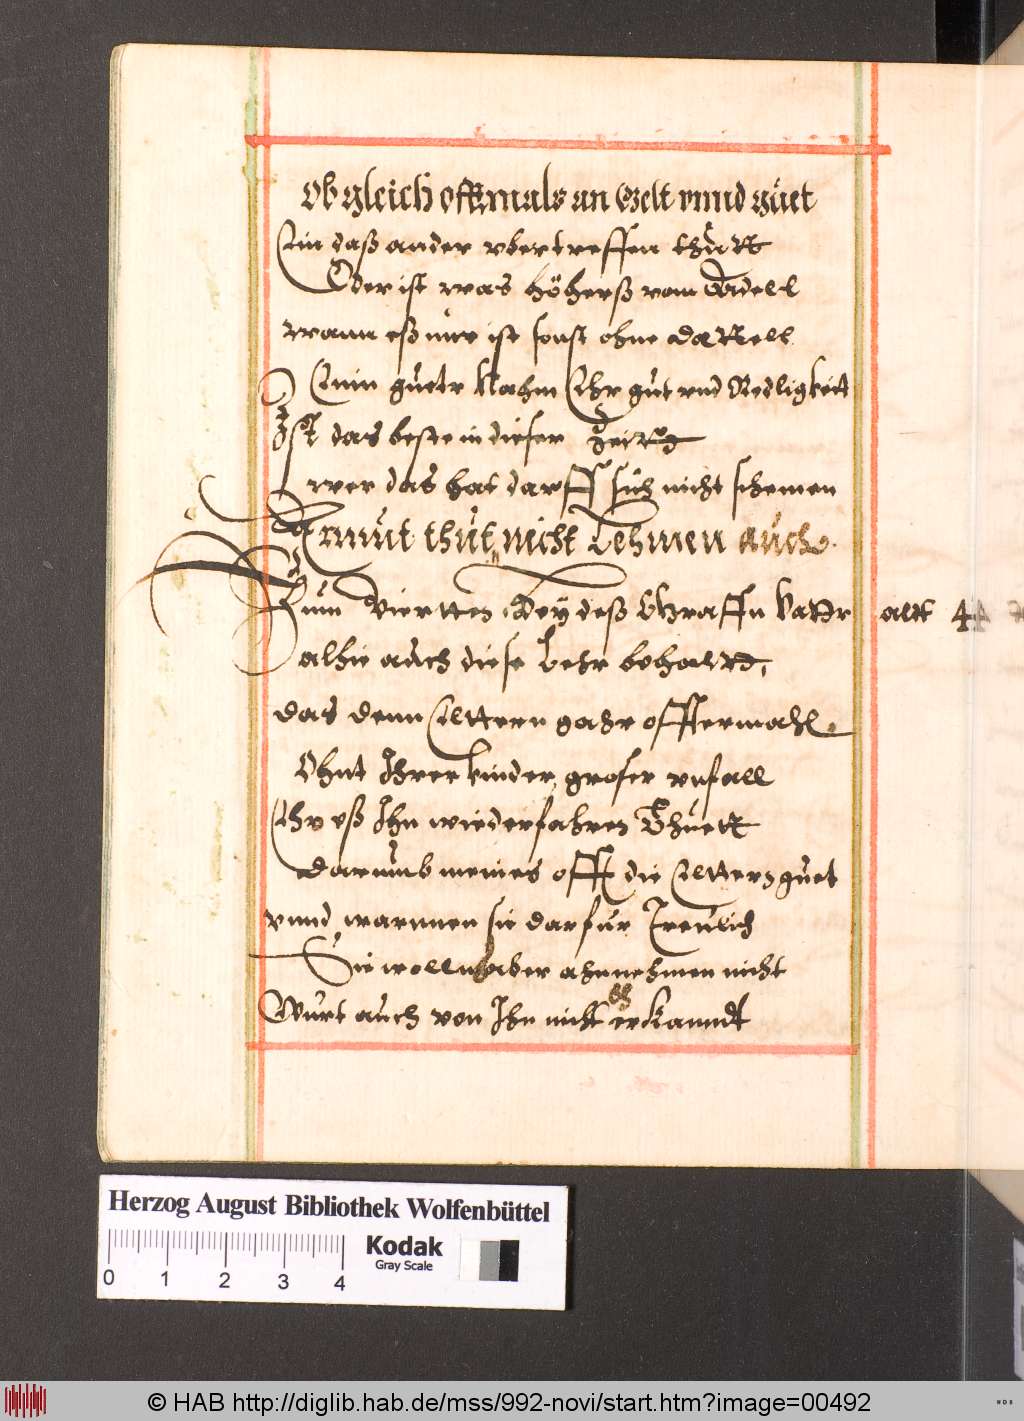 Ob gleich offtmals an Gelt vnnd güet
Ein daß ander vbertreffen thűtt
Oder ist was höherß vom Adell
wann eß nur ist sonst ohne dattell
Ein gueter Nahm Ehr gut vnd Redligkeit
Ist das beste in dieser Zeitt
wer das hat darff sich nicht schemen
Armüt thüt nicht Lehmen auch
Zum Viertten Bey deß Graffn alt 44
alhie auch diese Lehr behalt
das denn Elttern gahr offtermahl
Ohnt Ihrer kinder groser vnfall
Ehr eß Ihn wiederfahren Thuett
Darumb meines offt die Eltern guet
vnnd warnnen sie darfur Treulich
Sie wollns aber ahnnehmen nicht
Würt auch von Ihn nicht erkanndt
Herzog August Bibliothek Wolfenbüttel
Kodak
Gray Scale
0 1 2 3 4
© HAB http://diglib.hab.de/mss/992-novi/start.htm?image=00492